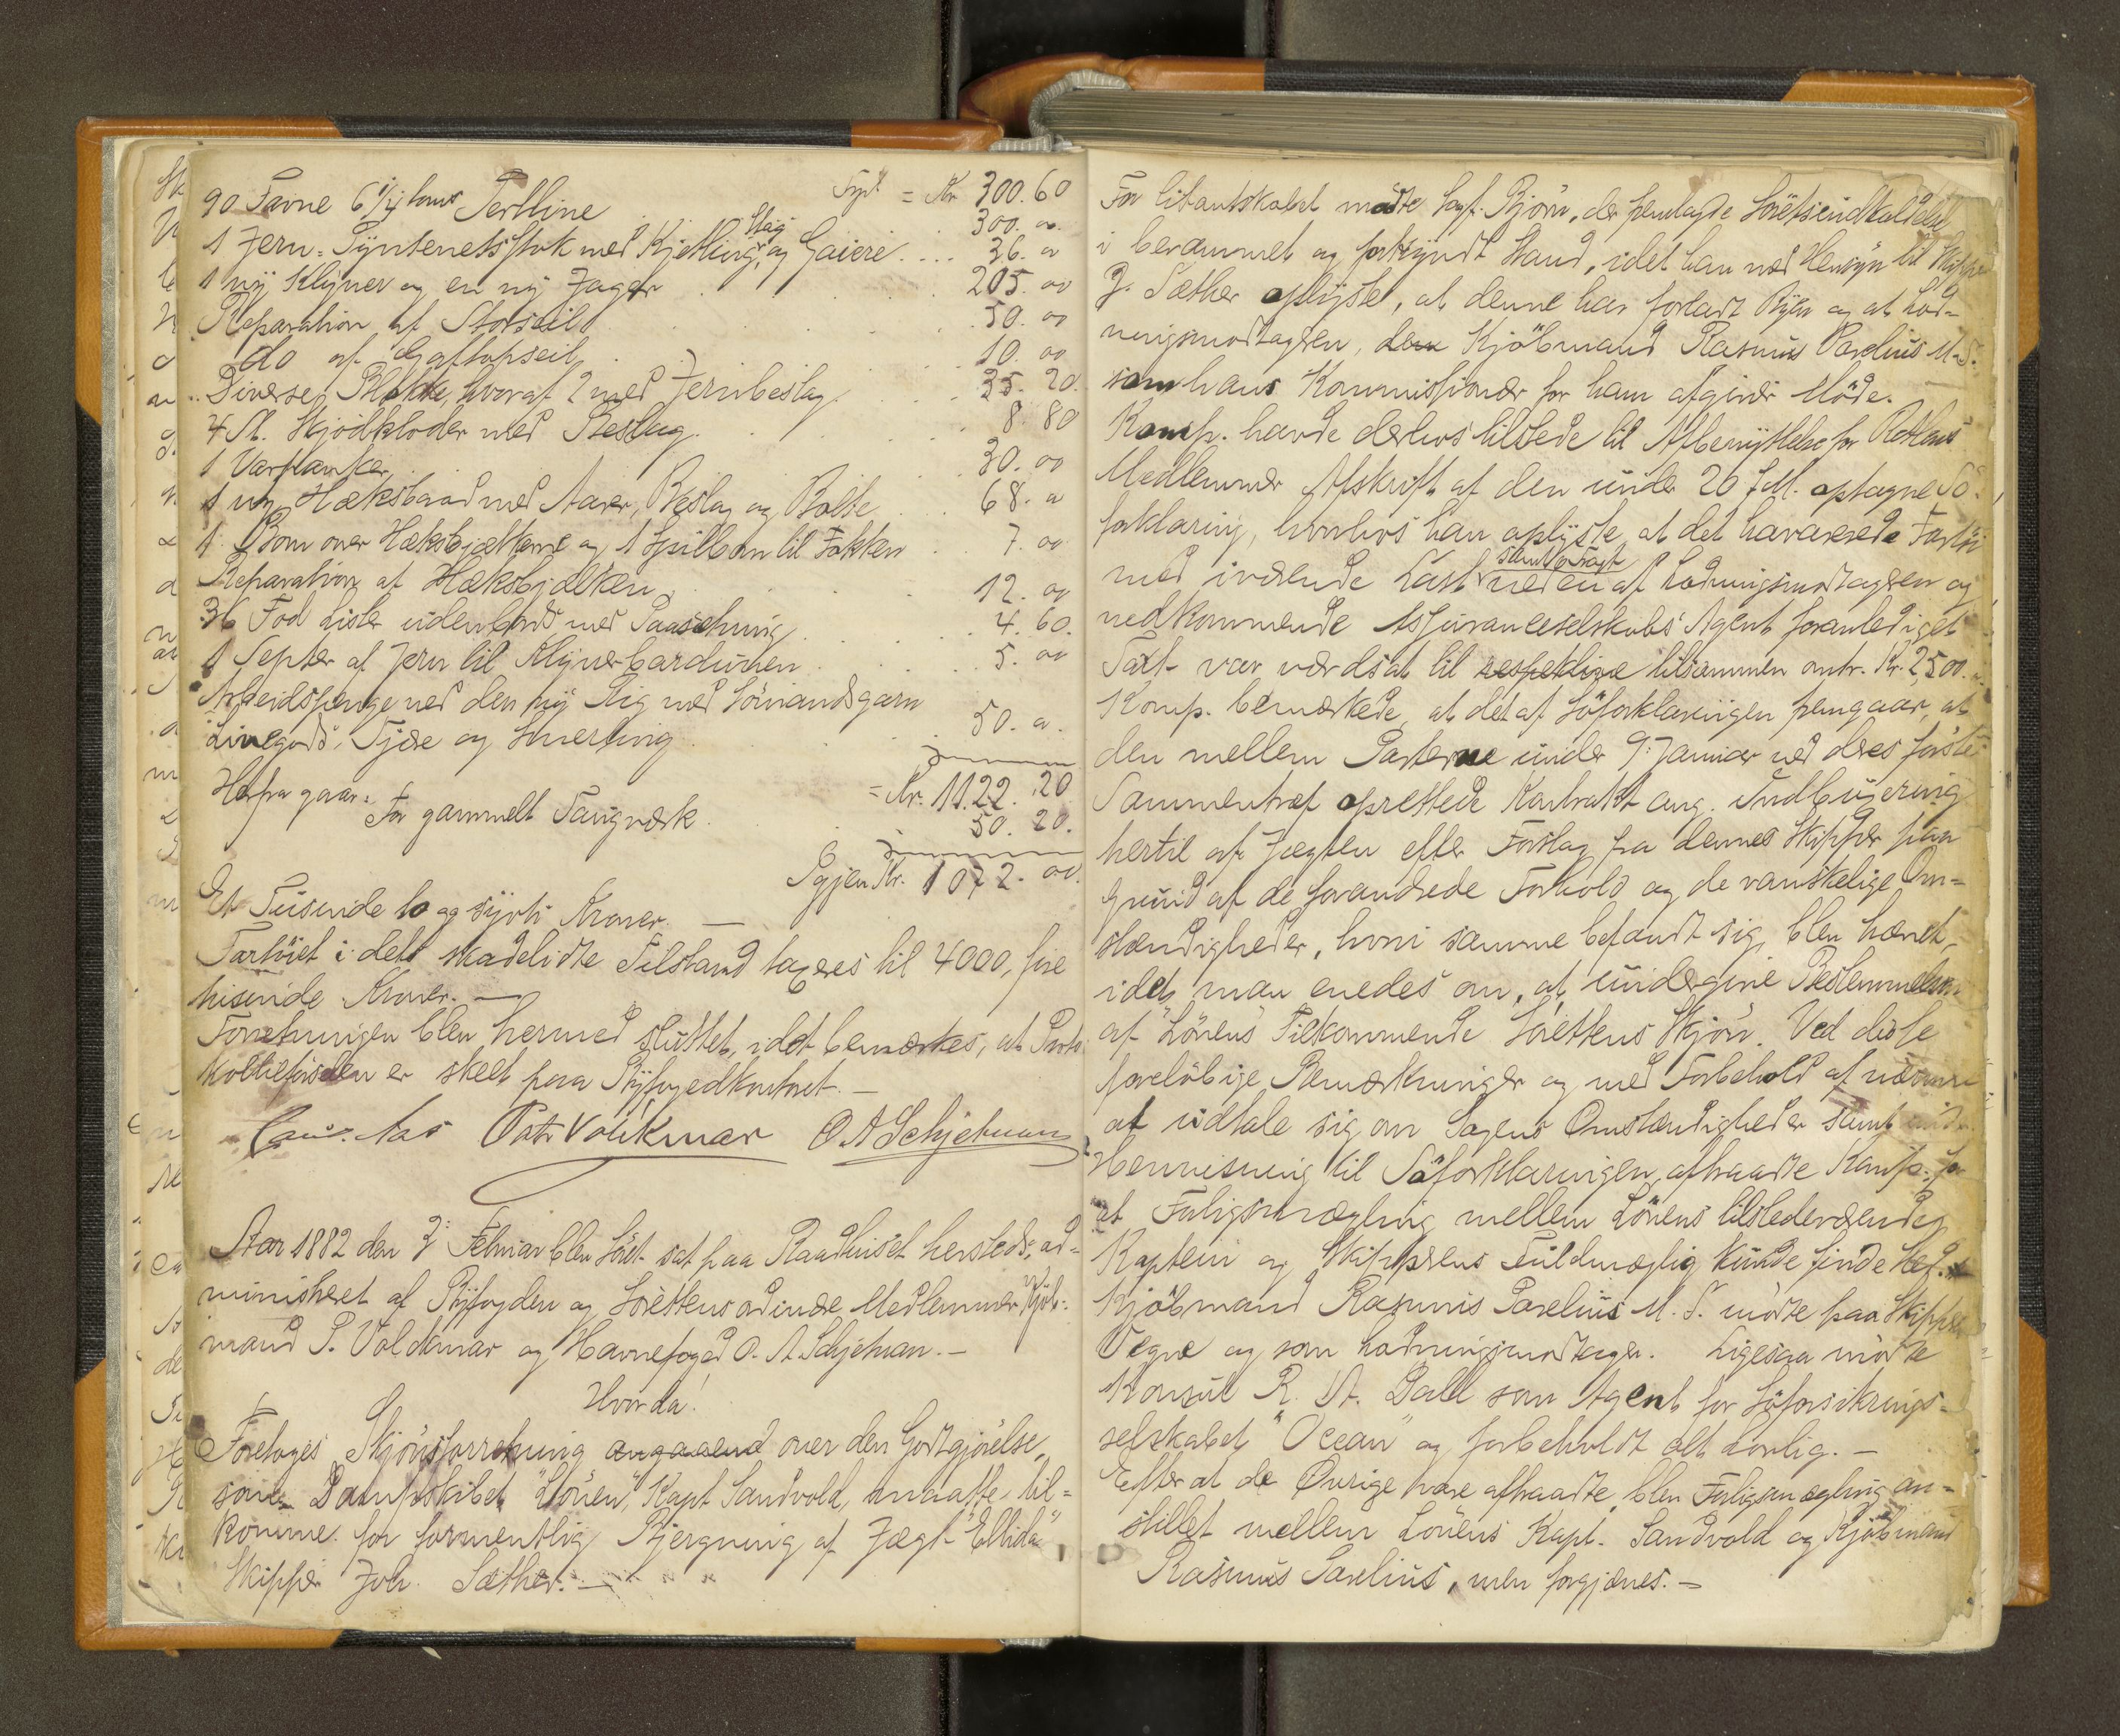 Tspt = Kr. 300.60
90 Favne 6 1/4 toms Pertline . 300. oo.
1 Jern-Pyntenetsstok med Kjetting, Stag og Gaiere . . . . 36. oo
1 ny Klyver og en ny Jager . . . 205. oo
Reparation af Storseil . . . 50. oo
do af Gaftopseil . . . 10. oo
Diverse Blokke, hvoraf 2 med Jernbeslag . . . 35. 20.
4 St. Skjödkloder med Beslag . . . 8. 80
1 Varpanker . . . 30. oo
1 ny Hæksbaad med Aarer, Beslag og Bolte . . . 68. oo
1 Bom over Hæksbjælkerne og 1 Spilbom til Fokken . 7. oo
Reparation af Hæksbjælken . . . 12. oo
36 Fod Lister udenbords med Paasætning . . . 4. 60.
1 Septer af Jern til Klyverbardunen . . . 5. oo
Arbeidspenge ved den ny Rig med Sömandsgarn
Linegods, Tjære og Smerting . . . 50. oo.
= Kr. 1122. 20
Herfra gaar:
For gammelt Taugværk . . . 50. 20.
Igjen Kr. 1072. oo.
Et Tusinde to og syvti Kroner. —
Fartöiet i dets skadelidte Tilstand taxeres til 4000, fire
tusinde Kroner. —
Forretningen blev hermed sluttet, idet bemærkes, at Proto
kolltilförselen er skeet paa Byfogedkontoret. —
Aas Petr Volckmar O. A. Schjelman
Aar 1882 den 3: Februar blev Söret sat paa Raadhuset hersteds, ad-
ministreret af Byfogden og Sörettens ordinære Medlemmer Kjöb-
mand P. Volckmar og Havnefoged O. A. Schjelman. —
Hvorda!
Foretages Skjönsforretning angaaend over den Godtgjörelse,
som Dampskibet "Löven", Kapt Sandvold, maatte til-
komme for formentlig Bjergning af Jægt "Ellida"
Skipper Joh. Sæther. —
For Citantskabet mödte Sagf. Bjørn, der fremlagde Söretsindkaldelse
i berammet og forkyndt Stand, idet han med Hensyn til Skipper
J. Sæther oplyste, at denne har forladt Byen og at Lad-
ningsmodtageren, dem Kjöbmand Rasmus Parelius M. S.
som hans Kommissionær for ham afgiver Möde. —
Komp. havde derhos tilstede til Afbenyttelse for Rettens
Medlemmer Afskrift af den under 26 f. M. optagne Sö-
forklaring, hvorhos han oplyste, at det havarerede Fartöi
med iværende Last samt Fragt ved en af Ladningsmodtageren og
vedkommende Assuranceselskabs Agent foranlediget
Taxt var værdsat til respektive tilsammen omtr. Kr. 2,500.
Komp. bemærkede, at det af Söforklaringen fremgaar, at
den mellem Parterne under 9: Januar ved deres förste
Sammentræf oprettede Kontrakt ang. Indbugsering
hertil af Jægten efter Forslag fra dennes Skipper paa
Grund af de forandrede Forhold og de vanskelige Om-
stændigheder, hvori samme befandt sig, blev hævet,
idet man enedes om, at undergive Bestemmelsen
af "Lövens" Tilkommende Sörettens Skjön. Ved disse
foreløbige Bemærkninger og med Forbehold af nærmere
at udtale sig om Sagens Omstændigheder samt under
Henvisning til Söforklaringen, afhandte Komp. for
at Forligsmægling mellem Lövens tilstedeværende
Kaptein og Skipperens Fuldmægtig kunde finde Sted.
Kjöbmand Rasmus Parelius M. S. mödte paa Skippers
Vegne og som Ladningsmodtager. Ligesaa mödte
Konsul R. A. Dall som Agent for Söforsikrings-
selskabet "Ocean" og forbeholdt alt Lovlig. —
Efter at de Övrige vare afhaadte, blev Forligsmægling an-
stillet mellem Lövens Kapt. Sandvold og Kjöbmand
Rasmus Parelius, men forgjæves. —